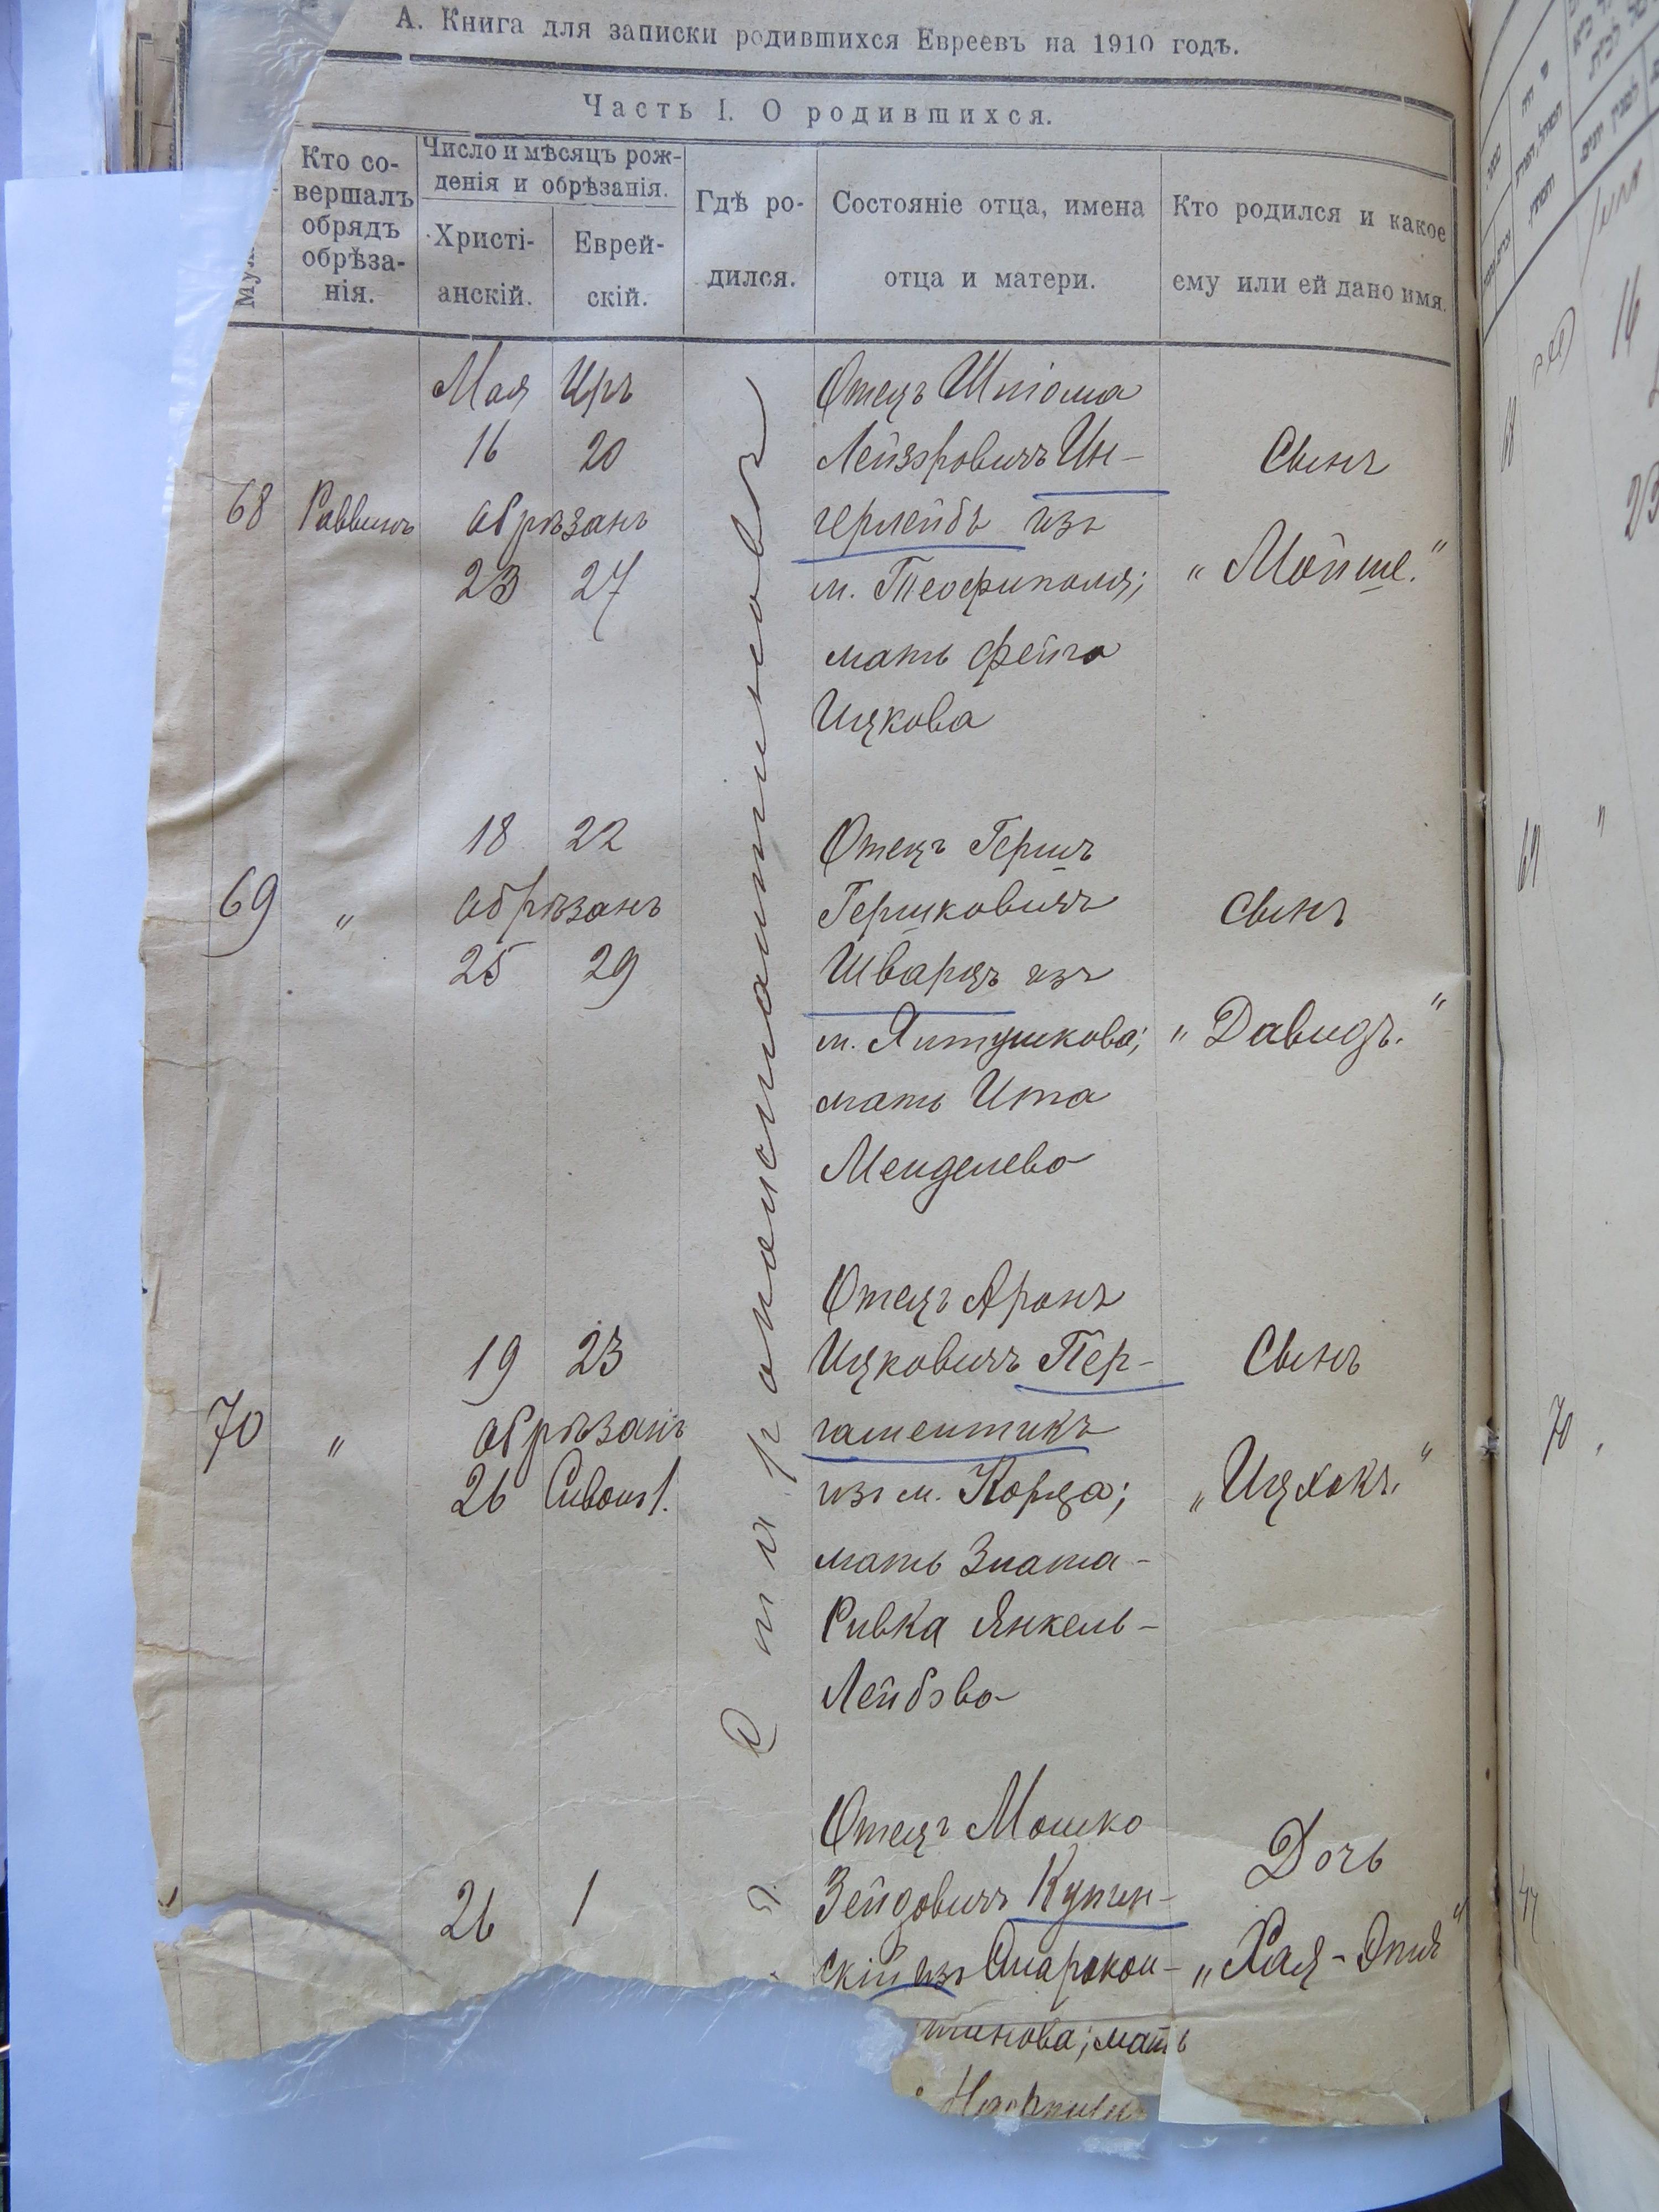 А. Книга для записки родившихся Евреевъ на 1910 годъ.
Часть I. О родившихся.
Кто со-
вершалъ
обрядъ
обрѣза-
нія.
Число и мѣсяцъ рож-
денія и обрѣзанія.
Христі-
анскій.
Еврей-
скій.
Гдѣ ро-
дился.
Состояніе отца, имена
отца и матери.
Кто родился и какое
ему или ей дано имя.
Староконстантиновъ
68
Раввинъ
Мая Иръ
16 20
обрѣзанъ
23 27
Отецъ Шліома
Лейзэровичъ Ун-
герлейдъ изъ
м. Теофиполя;
мать Фейга
Ицкова
Сынъ
„Мойше."
69
"
18 22
обрѣзанъ
25 29
Отецъ Гершъ
Гершковичъ
Шварцъ изъ
м. Ялтушкова;
мать Ита
Менделева
Сынъ
„Давидъ."
70
"
19 23
обрѣзанъ
26 Сиванъ 1.
Отецъ Аронъ
Ицковичъ Пер-
гаментикъ
изъ м. Корца;
мать Злата-
Ривка Янкель-
Лейбова
Сынъ
„Ицхокъ."
26 1
Отецъ Мошко
Зейдовичъ Купин-
скій изъ Старокон-
тинова; мать
Дочь
„Хая-Этля"
68
69
70
16
23